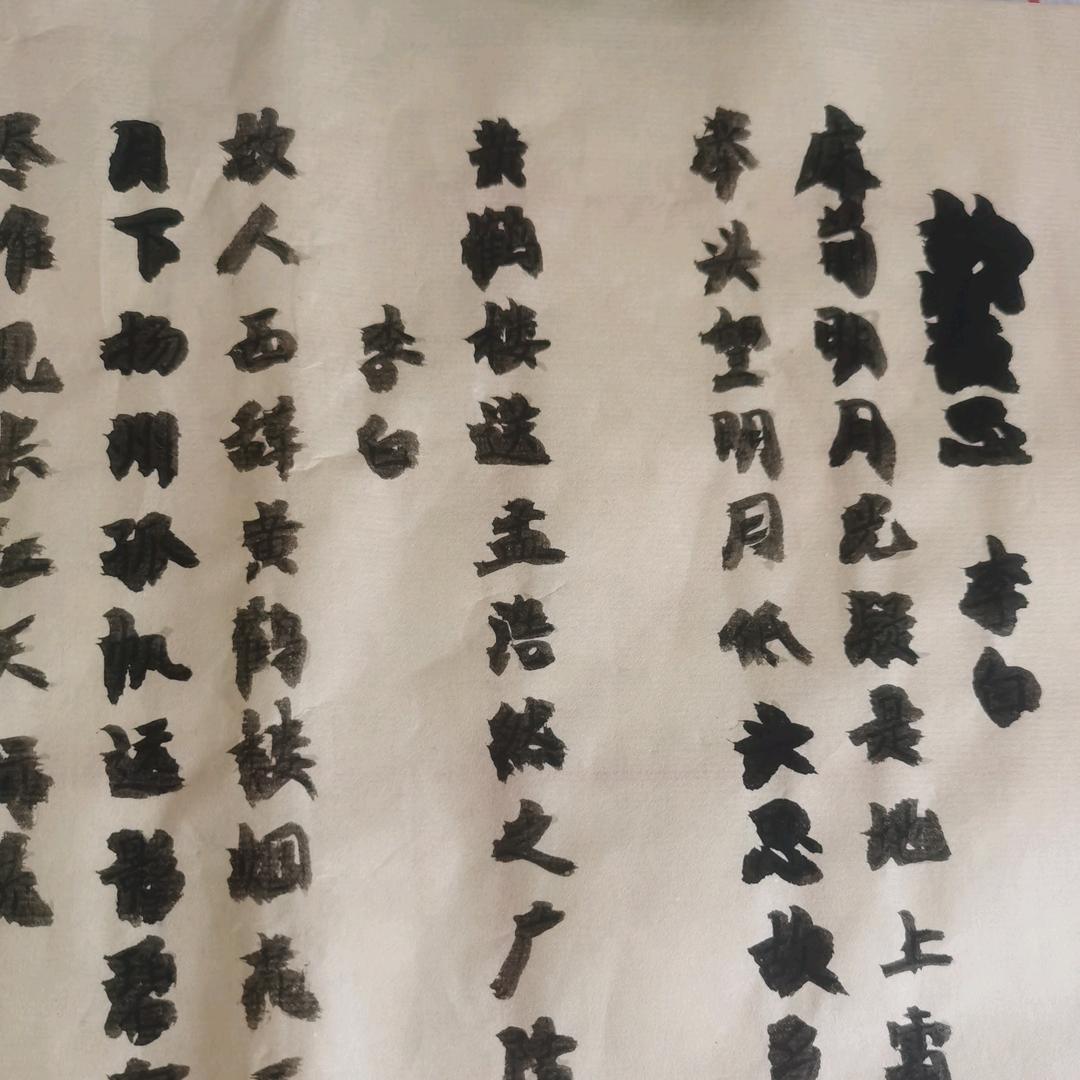 李白
床前明月光疑是地上霜
举头望明月低头思故乡
黄鹤楼送孟浩然之广陵
李白
故人西辞黄鹤楼烟花
月下扬州孤帆远影碧
尽唯见长江天际流